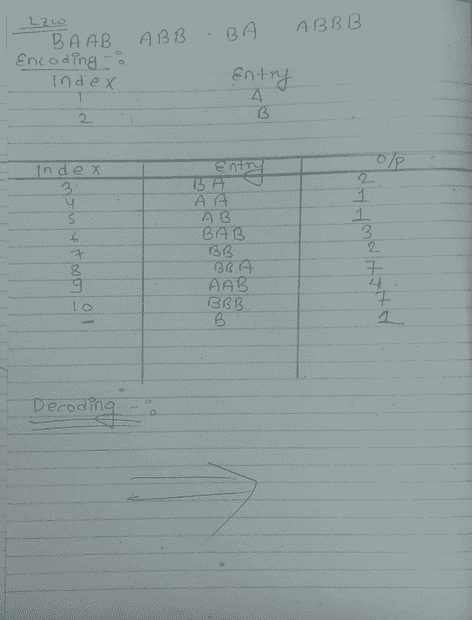 LZW
BAAB ABB . BA ABBB
Encoding -:
Index Entry
1 A
2 B
Index Entry O/P
3 BA 2
4 AA 1
5 AB 1
6 BAB 3
7 BB 2
8 BBA 7
9 AAB 4
10 BBB 7
– B 1
Decoding -: